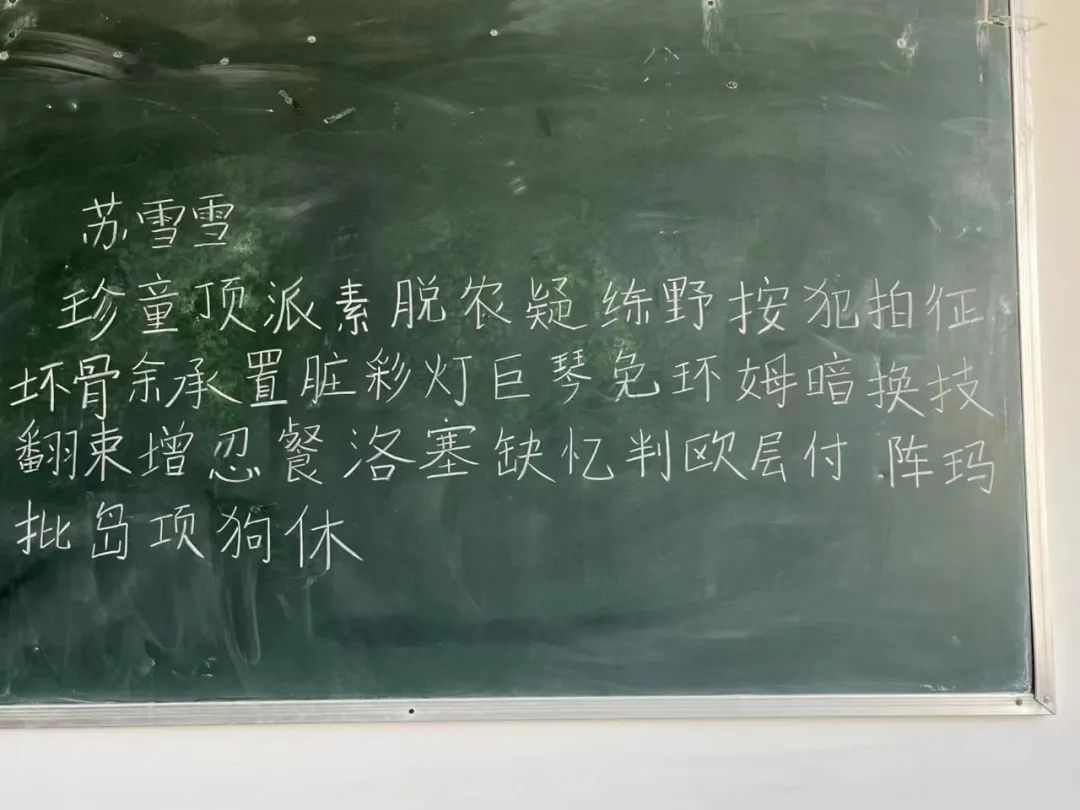 苏雪雪
珍童顶派素脱农疑练野按犯拍征
坏骨余承置脏彩灯巨琴免环姆暗换技
翻束增忍餐洛塞缺忆判欧层付 阵玛
批岛项狗休